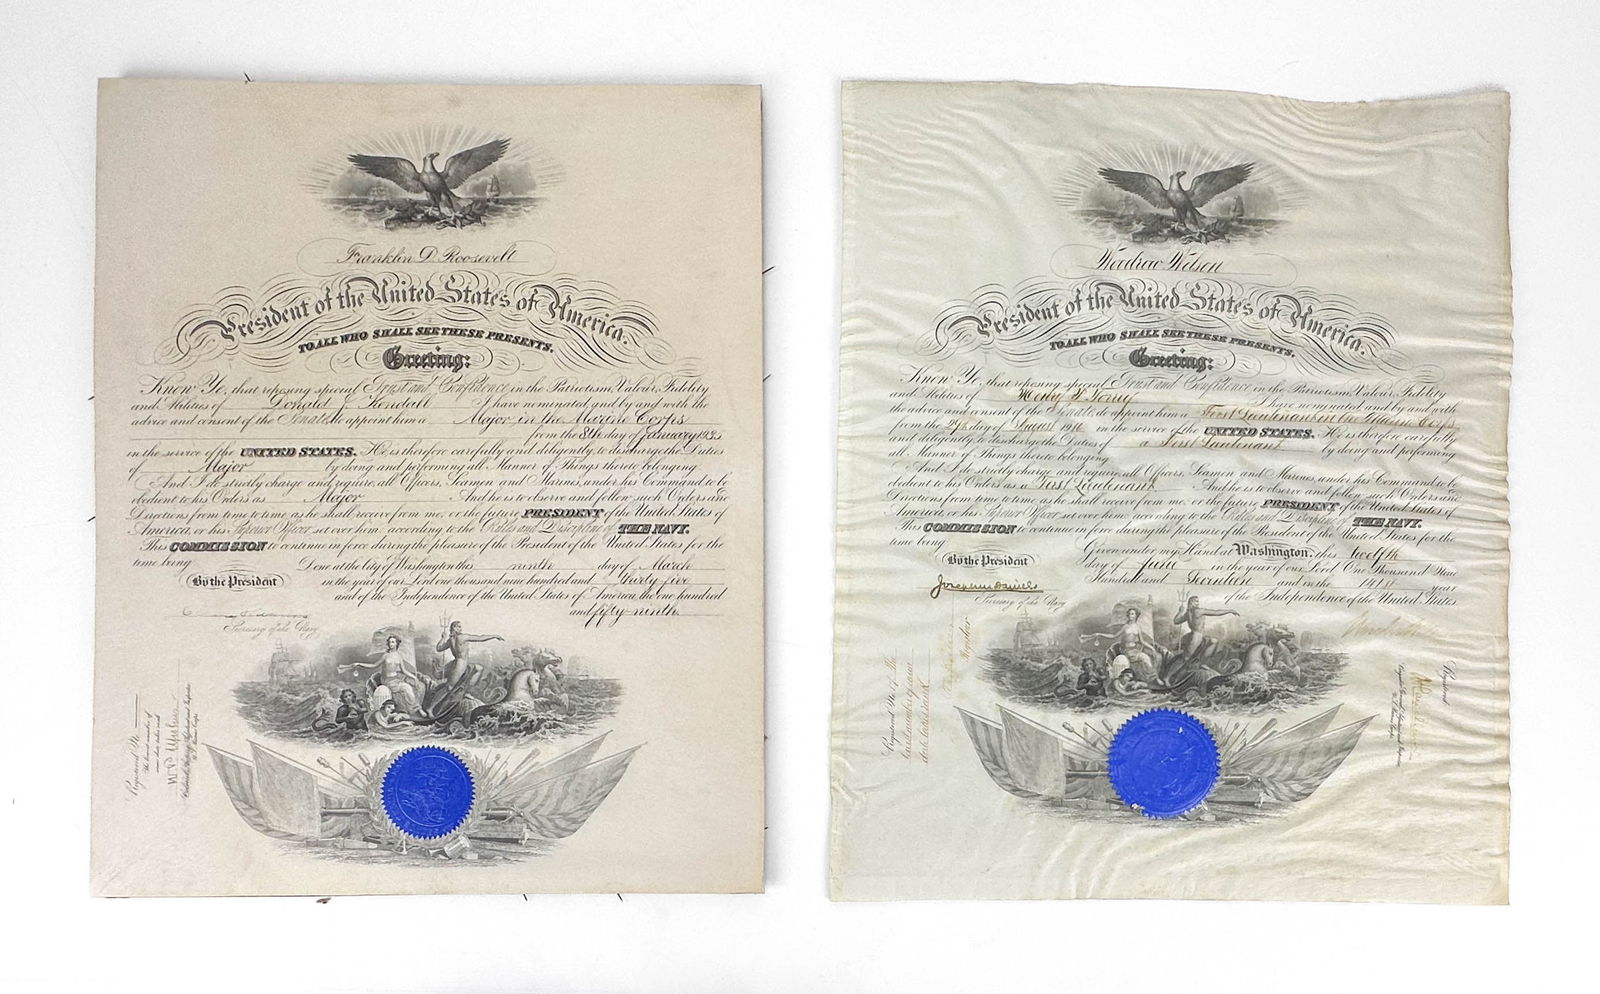 Franklin D. Roosevelt
President of the United States of America.
TO ALL WHO SHALL SEE THESE PRESENTS,
Greeting:
Know Ye, that reposing special Trust and Confidence in the Patriotism, Valour, Fidelity
and Abilities of Donald J. Kendall I have nominated and by and with the
advice and consent of the Senate, do appoint him a Major in the Marine Corps
from the 8th day of January 1935
in the service of the UNITED STATES. He is therefore carefully and diligently to discharge the Duties
of Major by doing and performing all Manner of Things thereto belonging
And I do strictly charge and require all Officers, Seamen and Marines under his Command to be
obedient to his Orders as Major And he is to observe and follow such Orders and
Directions from time to time as he shall receive from me, or the future PRESIDENT of the United States of
America, or his Superior Officer set over him, according to the Rules and Discipline of THE NAVY.
This COMMISSION to continue in force during the pleasure of the President of the United States for the
time being
Done at the city of Washington this ninth day of March
By the President
in the year of our Lord one thousand nine hundred and thirty five
and of the Independence of the United States of America, the one hundred
and fifty ninth
Secretary of the Navy
Registered No
Woodrow Wilson
President of the United States of America.
TO ALL WHO SHALL SEE THESE PRESENTS,
Greeting:
Know Ye, that reposing special Trust and Confidence in the Patriotism, Valour, Fidelity
and Abilities of I have nominated and by and with
the advice and consent of the Senate do appoint him a First Lieutenant in the Marine Corps
from the 29th day of August 1916 in the service of the UNITED STATES. He is therefore carefully
and diligently to discharge the Duties of a First Lieutenant by doing and performing
all Manner of Things thereto belonging
And I do strictly charge and require all Officers, Seamen and Marines under his Command to be
obedient to his Orders as a First Lieutenant And he is to observe and follow such Orders and
Directions from time to time as he shall receive from me, or the future PRESIDENT of the United States of
America, or his Superior Officer set over him, according to the Rules and Discipline of THE NAVY.
This COMMISSION to continue in force during the pleasure of the President of the United States for the
time being
Given under my Hand at Washington, this twelfth
By the President
day of June in the year of our Lord One Thousand Nine
Hundred and Seventeen and in the 141st year
of the Independence of the United States
Josephus Daniels
Secretary of the Navy
Register
Registered No
Registered